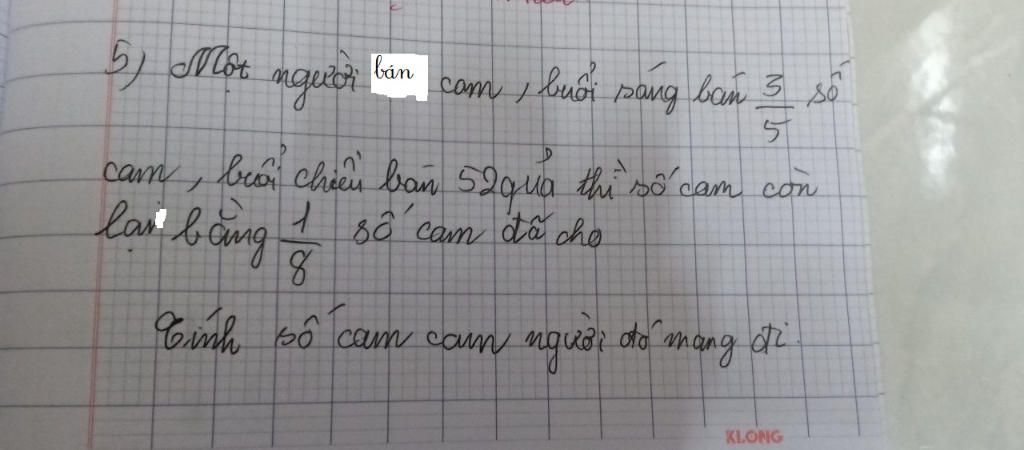 5) Một người bán cam, buổi sáng bán 3/5 số
cam, buổi chiều bán 52 quả thì số cam còn
lại bằng 1/8 số cam đã cho
Tính số cam cam người đó mang đi.
KLONG